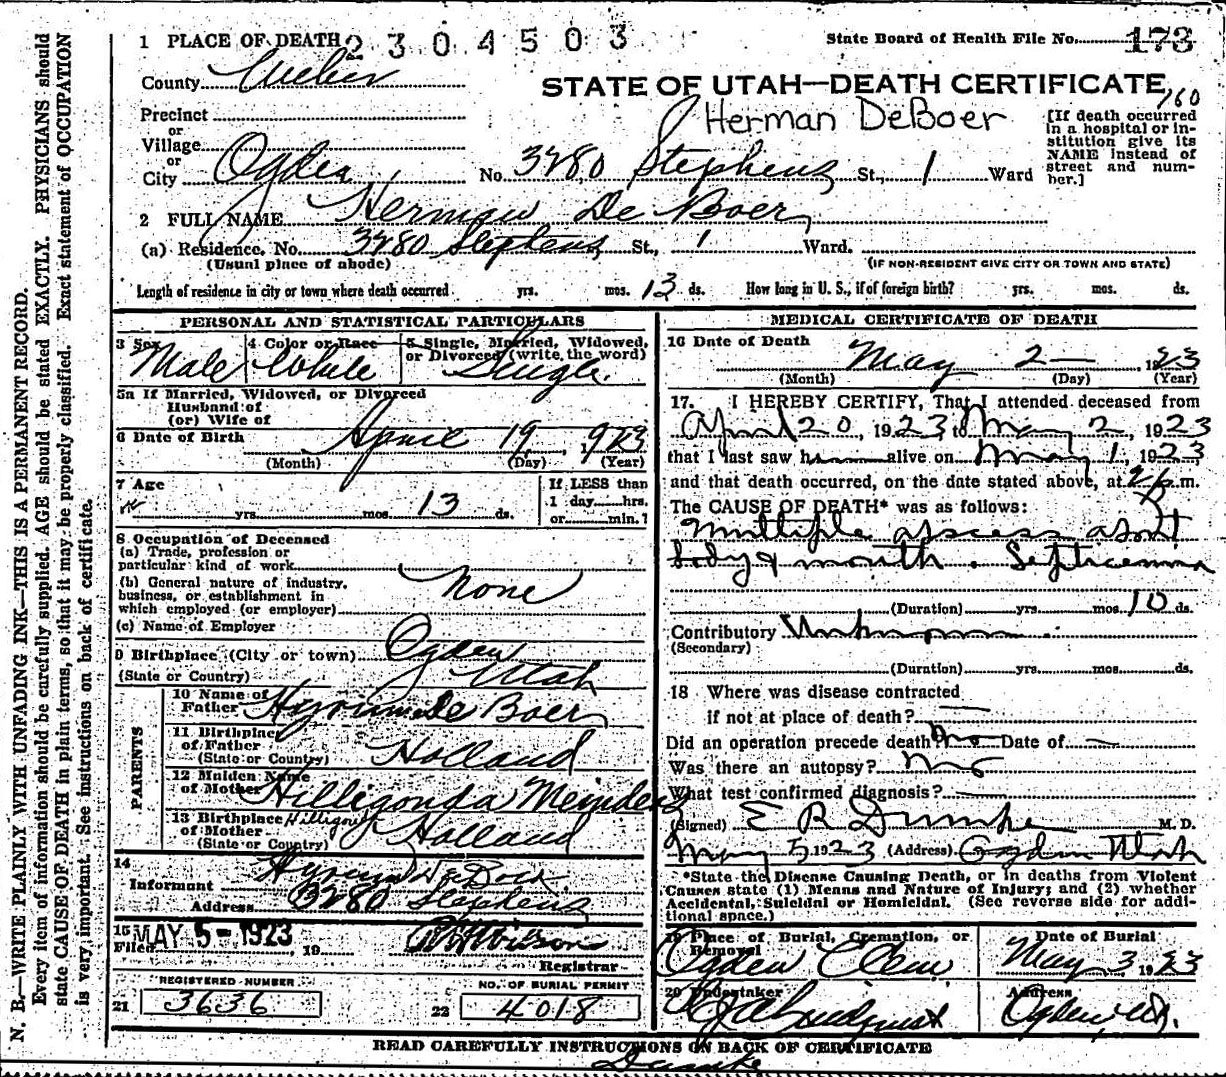 N. B.—WRITE PLAINLY WITH UNFADING INK—THIS IS A PERMANENT RECORD.
Every item of information should be carefully supplied. AGE should be stated EXACTLY. PHYSICIANS should
state CAUSE OF DEATH in plain terms, so that it may be properly classified. Exact statement of OCCUPATION
is very important. See instructions on back of certificate.
1 PLACE OF DEATH 2304503
State Board of Health File No. 173
County Weber
STATE OF UTAH—DEATH CERTIFICATE
160
Precinct
or
Village
or
Herman DeBoer
[If death occurred
in a hospital or in-
stitution give its
NAME instead of
street and num-
ber.]
City Ogden No. 3280 Stephens St., 1 Ward
2 FULL NAME Herman De Boer
(a) Residence, No. 3280 Stephens St., 1 Ward.
(Usual place of abode) (IF NON-RESIDENT GIVE CITY OR TOWN AND STATE)
Length of residence in city or town where death occurred yrs. mos. 13 ds. How long in U. S., if of foreign birth? yrs. mos. ds.
PERSONAL AND STATISTICAL PARTICULARS
3 Sex 4 Color or Race 5 Single, Married, Widowed,
or Divorced (write the word)
Male White Single
5a If Married, Widowed, or Divorced
Husband of
(or) Wife of
6 Date of Birth April 19, 1923
(Month) (Day) (Year)
7 Age
yrs. mos. 13 ds.
If LESS than
1 day hrs.
or min.?
8 Occupation of Deceased
(a) Trade, profession or
particular kind of work
(b) General nature of industry,
business, or establishment in
which employed (or employer)
None
(c) Name of Employer
9 Birthplace (City or town) Ogden
(State or Country) Utah
PARENTS
10 Name of
Father Hyrum De Boer
11 Birthplace
of Father
(State or Country) Holland
12 Maiden Name
of Mother Hilligonda Meinders
13 Birthplace
of Mother
(State or Country) Holland
14
Informant Hyrum De Boer
Address 3280 Stephens
15
Filed MAY 5-1923, 19
Registrar
REGISTERED NUMBER
21 3636
NO. OF BURIAL PERMIT
22 4018
MEDICAL CERTIFICATE OF DEATH
16 Date of Death
May 2— 1923
(Month) (Day) (Year)
17. I HEREBY CERTIFY, That I attended deceased from
April 20, 1923 to May 2, 1923
that I last saw h alive on May 1, 1923
and that death occurred, on the date stated above, at 2 p.m.
The CAUSE OF DEATH* was as follows:
Multiple abscess about
body & mouth. Septicemia
(Duration) yrs. mos. 10 ds.
Contributory Unknown
(Secondary)
(Duration) yrs. mos. ds.
18 Where was disease contracted
if not at place of death?
Did an operation precede death? no Date of
Was there an autopsy? no
What test confirmed diagnosis?
(Signed) E R Dumke M. D.
May 5 1923 (Address) Ogden Utah
*State the Disease Causing Death, or in deaths from Violent
Causes state (1) Means and Nature of Injury; and (2) whether
Accidental, Suicidal or Homicidal. (See reverse side for addi-
tional space.)
19 Place of Burial, Cremation, or
Removal
Date of Burial
Ogden Cem May 3 1923
20 Undertaker Address
Lindquist Ogden, Ut.
READ CAREFULLY INSTRUCTIONS ON BACK OF CERTIFICATE
Dumke